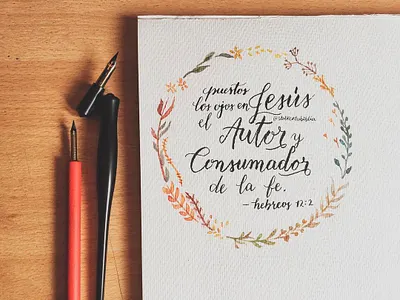 puestos
los ojos en Jesús
el Autor y
Consumador
de la fe.
— hebreos 12:2